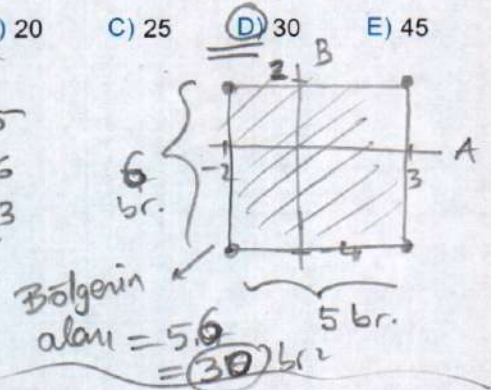 ) 20 C) 25 D) 30 E) 45
B
2
A
-2
3
6
br.
-4
5 br.
Bölgenin
alanı = 5.6
= 30 br²